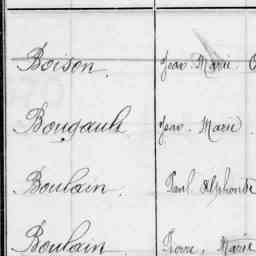 Boison. Jean Marie
Bougault Jean. Marie.
Boulain. Paul Alphonse
Boulain Pierre, Marie